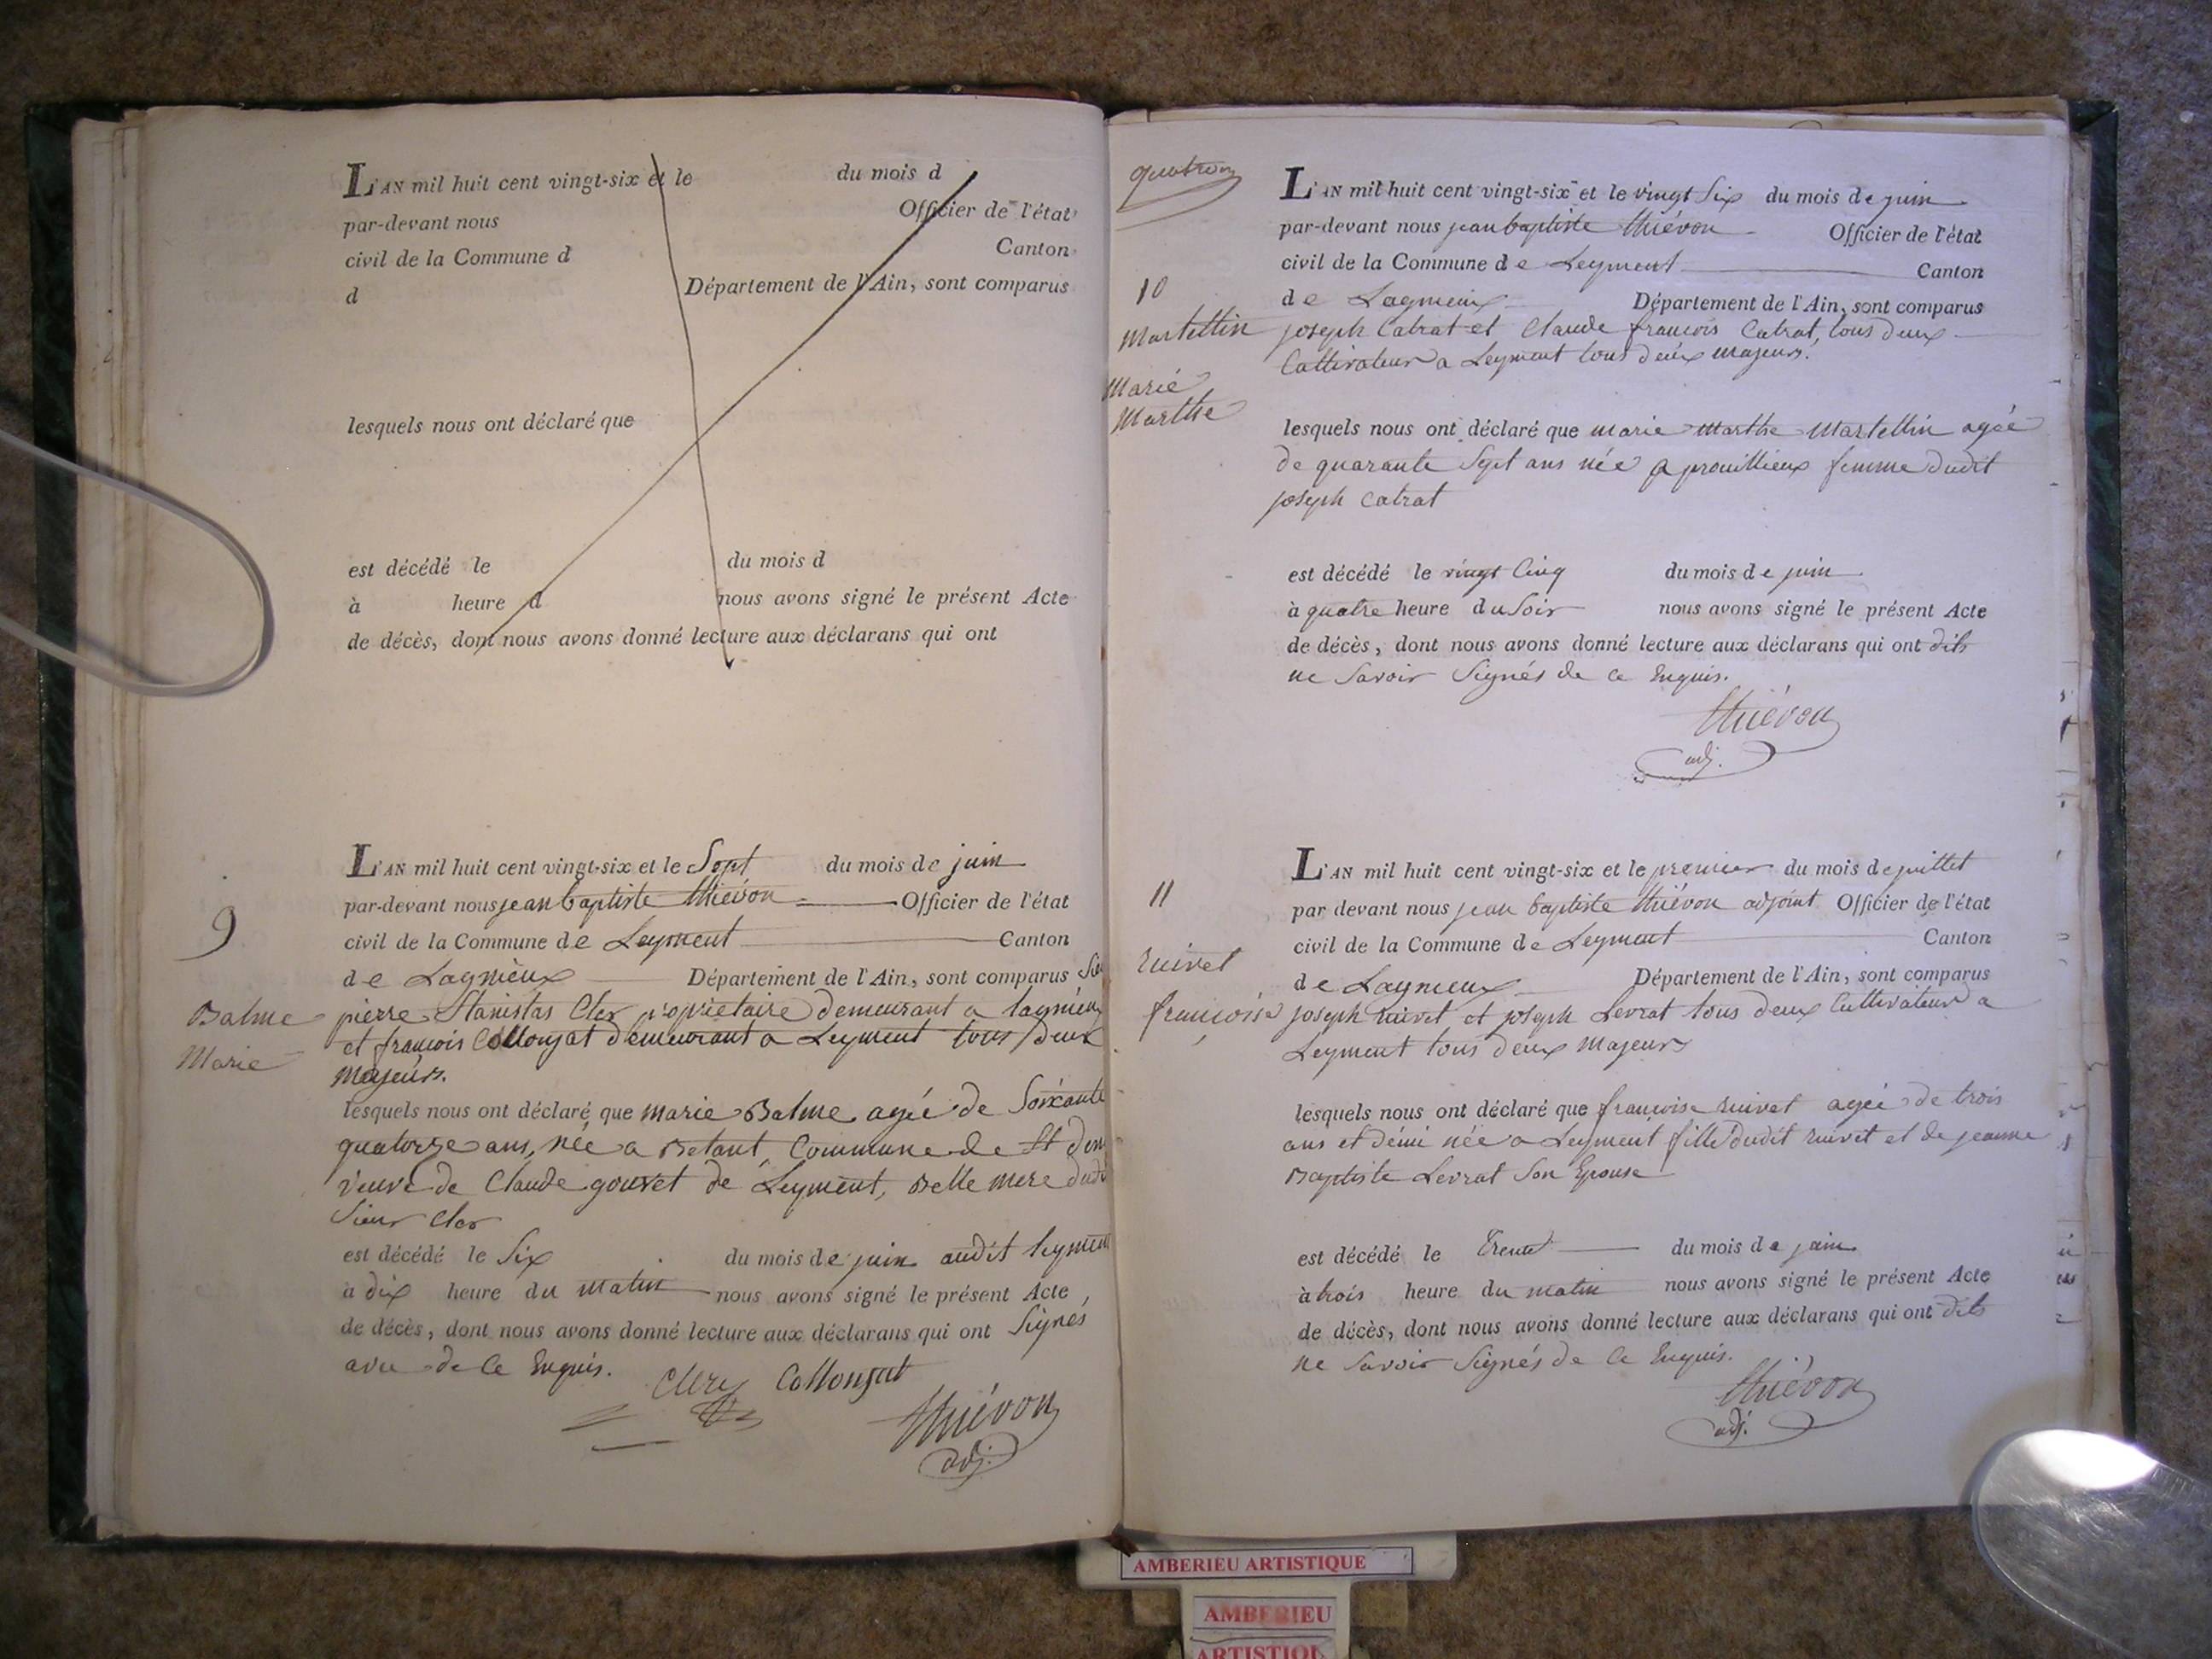 L'AN mil huit cent vingt-six et le du mois d
par-devant nous Officier de l'état
civil de la Commune d Canton
d Département de l'Ain, sont comparus
lesquels nous ont déclaré que
est décédé le du mois d
à heure d nous avons signé le présent Acte
de décès, dont nous avons donné lecture aux déclarans qui ont
9
Balme
Marie
L'AN mil huit cent vingt-six et le Sept du mois de juin
par-devant nous jean baptiste thiévon Officier de l'état
civil de la Commune de Leyment Canton
de Lagnieux Département de l'Ain, sont comparus
pierre Stanislas Cler propriétaire demeurant a lagnieu
et françois Collonjat demeurant a Leyment tous deux
Majeurs.
lesquels nous ont déclaré que marie Balme agée de Soixante
quatorze ans, née a Betant, Commune de St
veuve de Claude gouvet de Leyment, Belle mere dudi
Sieur Cler
est décédé le Six du mois de juin audit leyment
à dix heure du matin nous avons signé le présent Acte
de décès, dont nous avons donné lecture aux déclarans qui ont Signés
avec de ce Enquis.
Clerc Collonjat
thiévon
adj.
quatre
10
Martellin
Marie
Marthe
L'AN mil huit cent vingt-six et le vingt Six du mois de juin
par-devant nous jean baptiste thiévon Officier de l'état
civil de la Commune de Leyment Canton
de Lagnieux Département de l'Ain, sont comparus
joseph Catrat et Claude françois Catrat, tous deux
Cultivateur a Leyment tous deux majeurs.
lesquels nous ont déclaré que marie Marthe Martellin agée
de quarante Sept ans née a prouillieux femme dudit
joseph Catrat
est décédé le vingt Cinq du mois de juin
à quatre heure du Soir nous avons signé le présent Acte
de décès, dont nous avons donné lecture aux déclarans qui ont dits
ne Savoir Signés de ce Enquis.
thiévon
adj.
11
ruivet
françoise
L'AN mil huit cent vingt-six et le premier du mois de juillet
par devant nous jean baptiste thiévon adjoint Officier de l'état
civil de la Commune de Leyment Canton
de Lagnieux Département de l'Ain, sont comparus
joseph ruivet et joseph Levrat tous deux Cultivateur a
Leyment tous deux Majeurs
lesquels nous ont déclaré que françoise ruivet agée de trois
ans et démi née a Leyment fille dudit ruivet et de jeanne
Baptiste Levrat Son Epouse
est décédé le trente du mois de juin
à trois heure du matin nous avons signé le présent Acte
de décès, dont nous avons donné lecture aux déclarans qui ont dits
ne Savoir Signés de ce Enquis.
thiévon
adj.
AMBERIEU ARTISTIQUE
AMBERIEU
ARTISTIQU